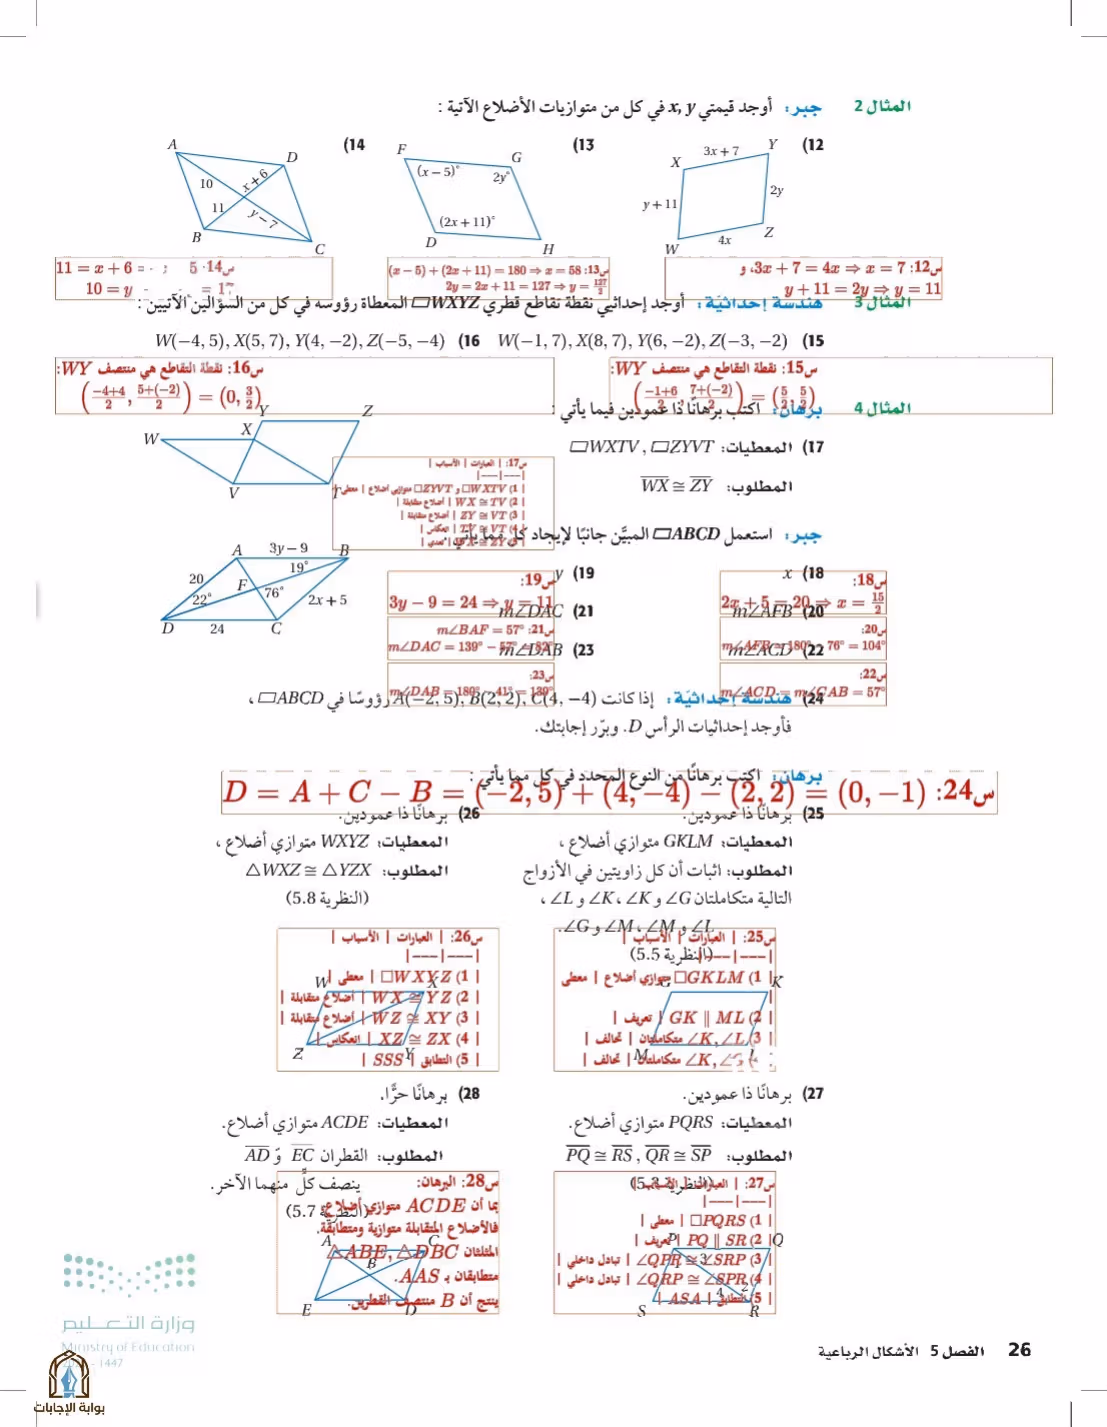 المثال 2 جبر: أوجد قيمتي x, y في كل من متوازيات الأضلاع الآتية :
(12
X
3x + 7
Y
y + 11
2y
W
4x
Z
(13
F
G
(x − 5)°
2y°
(2x + 11)°
D
H
(14
A
D
10
x + 6
11
y − 7
B
C
س12: 3x + 7 = 4x ⇒ x = 7، و
y + 11 = 2y ⇒ y = 11
س13: (x − 5) + (2x + 11) = 180 ⇒ x = 58
2y = 2x + 11 = 127 ⇒ y = 127/2
س14: 5
11 = x + 6 =
10 = y − = 17
المثال 3 هندسة إحداثية: أوجد إحداثيي نقطة تقاطع قطري ▱WXYZ المعطاة رؤوسه في كل من السؤالين الآتيين :
(15 W(−1, 7), X(8, 7), Y(6, −2), Z(−3, −2)
(16 W(−4, 5), X(5, 7), Y(4, −2), Z(−5, −4)
س15: نقطة التقاطع هي منتصف WY:
((−1+6)/2, (7+(−2))/2) = (5/2, 5/2)
س16: نقطة التقاطع هي منتصف WY:
((−4+4)/2, (5+(−2))/2) = (0, 3/2)
المثال 4 برهان: اكتب برهانًا ذا عمودين فيما يأتي :
(17 المعطيات: ▱WXTV , ▱ZYVT
المطلوب: WX ≅ ZY
W
X
Y
Z
V
T
س17: | العبارات | الأسباب |
|---|---|
| 1) WXTV□ و ZYVT□ متوازي أضلاع | معطى |
| 2) WX ≅ TV | أضلاع متقابلة |
| 3) ZY ≅ VT | أضلاع متقابلة |
| 4) TV ≅ VT | انعكاس |
| 5) WX ≅ ZY | تعدي |
جبر: استعمل ▱ABCD المبيَّن جانبًا لإيجاد كل مما يأتي :
A
3y − 9
B
20
19°
F
76°
22°
2x + 5
D
24
C
(18 x
(19 y
(20 m∠AFB
(21 m∠DAC
(22 m∠ACD
(23 m∠DAB
س18:
2x + 5 = 20 ⇒ x = 15/2
س19:
3y − 9 = 24 ⇒ y = 11
س20:
m∠AFB = 180° − 76° = 104°
س21: m∠BAF = 57°
m∠DAC = 139° − 57° = 82°
س22:
m∠ACD = m∠CAB = 57°
س23:
m∠DAB = 180° − 41° = 139°
(24 هندسة إحداثية: إذا كانت A(−2, 5), B(2, 2), C(4, −4) رؤوسًا في ▱ABCD ،
فأوجد إحداثيات الرأس D. وبرّر إجابتك.
س24: D = A + C − B = (−2, 5) + (4, −4) − (2, 2) = (0, −1)
برهان: اكتب برهانًا من النوع المحدد في كل مما يأتي :
(25 برهانًا ذا عمودين.
المعطيات: GKLM متوازي أضلاع ،
المطلوب: اثبات أن كل زاويتين في الأزواج
التالية متكاملتان ∠G و ∠K ، ∠K و ∠L ،
∠L و ∠M ، ∠M و ∠G.
(النظرية 5.5)
س25: | العبارات | الأسباب |
|---|---|
| 1) GKLM□ متوازي أضلاع | معطى
| 2) GK ∥ ML | تعريف |
| 3) ∠K, ∠L متكاملتان | تحالف |
∠K, ∠G متكاملتان | تحالف |
G
K
M
L
(26 برهانًا ذا عمودين.
المعطيات: WXYZ متوازي أضلاع ،
المطلوب: △WXZ ≅ △YZX
(النظرية 5.8)
س26: | العبارات | الأسباب |
|---|---|
| 1) WXYZ□ | معطى |
| 2) WX ≅ YZ | أضلاع متقابلة |
| 3) WZ ≅ XY | أضلاع متقابلة |
| 4) XZ ≅ ZX | انعكاس |
| 5) التطابق | SSS |
W
X
Z
Y
(27 برهانًا ذا عمودين.
المعطيات: PQRS متوازي أضلاع.
المطلوب: PQ ≅ RS , QR ≅ SP
(النظرية 5.3)
س27: | العبارات | الأسباب |
|---|---|
| 1) PQRS□ | معطى |
| 2) PQ ∥ SR | تعريف |
| 3) ∠QPR ≅ ∠SRP | تبادل داخلي |
| 4) ∠QRP ≅ ∠SPR | تبادل داخلي |
| 5) التطابق | ASA |
P
Q
3
4
2
S
R
(28 برهانًا حرًّا.
المعطيات: ACDE متوازي أضلاع.
المطلوب: القطران EC وَ AD
ينصف كلٌّ منهما الآخر.
(النظرية 5.7)
س28: البرهان:
بما أن ACDE متوازي أضلاع،
فالأضلاع المتقابلة متوازية ومتطابقة.
المثلثان △ABE, △DBC
متطابقان بـ AAS.
ينتج أن B منتصف القطرين.
A
C
B
E
D
وزارة التعليم
Ministry of Education
- 1447
26 الفصل 5 الأشكال الرباعية
بوابة الإجابات